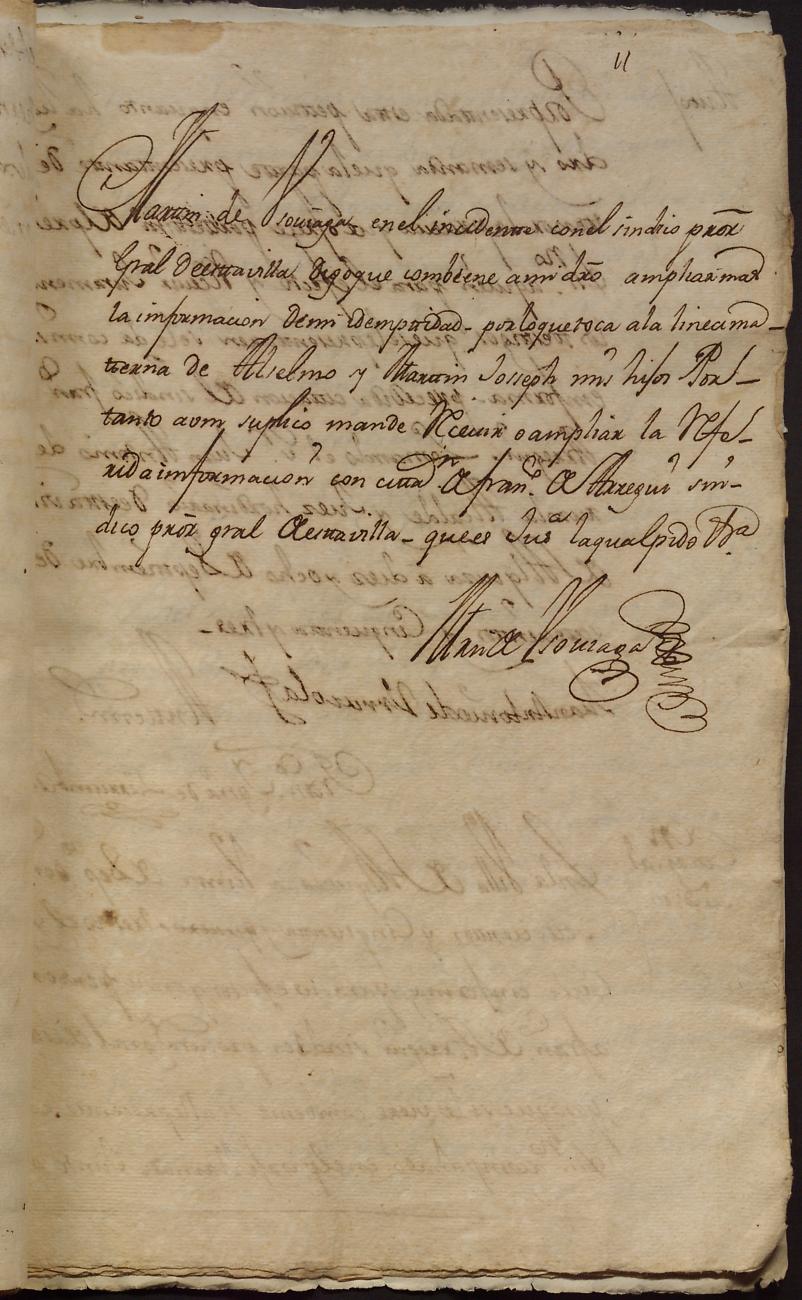 11
Martin de Ysouraga en el incidente con el sindico pror̃
Gral de esta villa digo que combiene a mi dr̃o ampliar mas
la informacion de mi idemptidad - por lo que toca a la linea ma-
terna de Anselmo y Martin Joseph mis hijos Por-
tanto a vm suplico mande Recevir o ampliar la Refe-
rida informacion con cittaon de Franco de Arregui sin-
dico pror̃ gral de esta villa - que es Justa la qual pido &a
Mar de Ysouraga